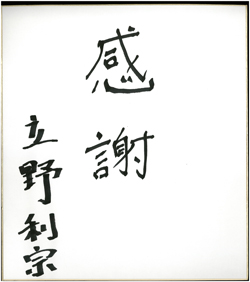 感謝
立野利宗